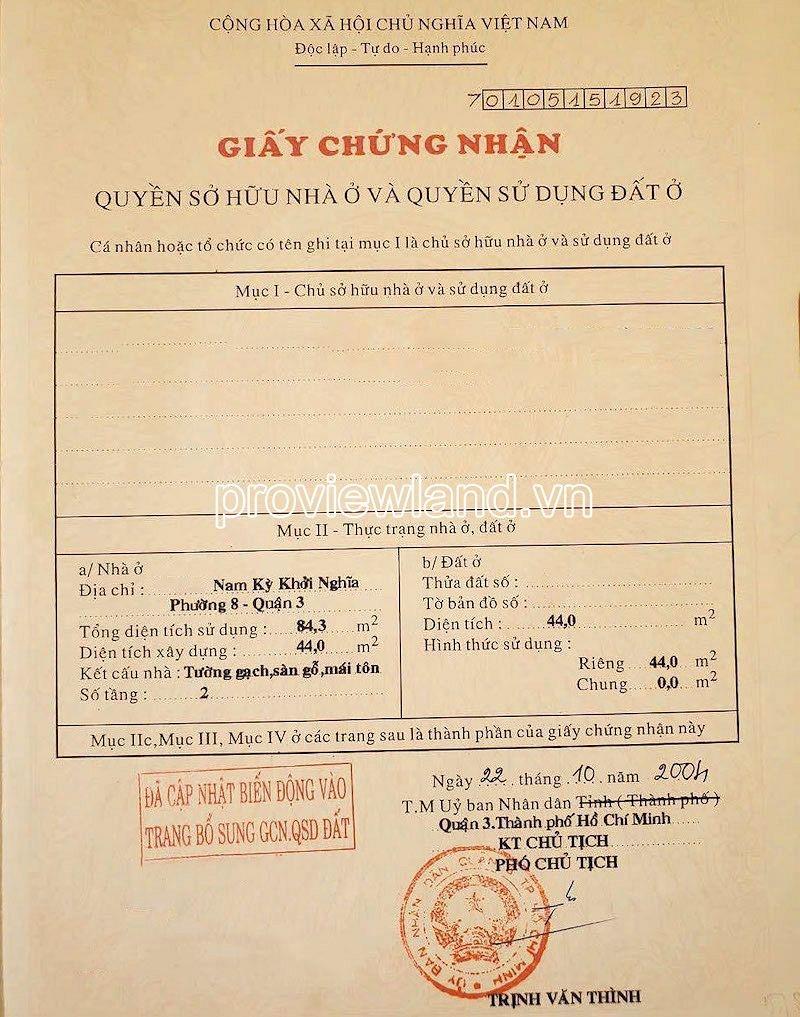 CỘNG HÒA XÃ HỘI CHỦ NGHĨA VIỆT NAM
Độc lập - Tự do - Hạnh phúc
70105151923
GIẤY CHỨNG NHẬN
QUYỀN SỞ HỮU NHÀ Ở VÀ QUYỀN SỬ DỤNG ĐẤT Ở
Cá nhân hoặc tổ chức có tên ghi tại mục I là chủ sở hữu nhà ở và sử dụng đất ở
Mục I - Chủ sở hữu nhà ở và sử dụng đất ở
proviewland.vn
Mục II - Thực trạng nhà ở, đất ở
a/ Nhà ở
Địa chỉ : Nam Kỳ Khởi Nghĩa
Phường 8 - Quận 3
Tổng diện tích sử dụng : 84,3 m2
Diện tích xây dựng : 44,0 m2
Kết cấu nhà : Tường gạch,sàn gỗ,mái tôn
Số tầng : 2
b/ Đất ở
Thửa đất số :
Tờ bản đồ số :
Diện tích : 44,0 m2
Hình thức sử dụng :
Riêng 44,0 m2
Chung 0,0 m2
Mục IIc,Mục III, Mục IV ở các trang sau là thành phần của giấy chứng nhận này
ĐÃ CẬP NHẬT BIẾN ĐỘNG VÀO
TRANG BỔ SUNG GCN.QSD ĐẤT
Ngày 22 tháng 10 năm 2004
T.M Uỷ ban Nhân dân Tỉnh ( Thành phố )
Quận 3.Thành phố Hồ Chí Minh
KT CHỦ TỊCH
PHÓ CHỦ TỊCH
ỦY BAN NHÂN DÂN QUẬN 3 TP. HỒ CHÍ MINH
TRỊNH VĂN THÌNH